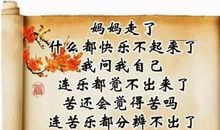 妈妈走了
什么都快乐不起来了
我问我自己
连乐都觉不出来了
苦还会觉得苦吗
连苦乐都分辨不出了